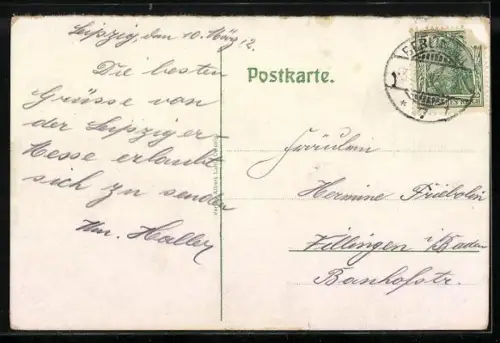 Leipzig, den 10. März 12.
Die besten
Grüsse von
der Leipziger
Messe erlaubt
sich zu senden
Wm. Haller
Postkarte.
BERLIN
Fräulein
Hermine Friebolin
Villingen i/Baden
Banhofstr.